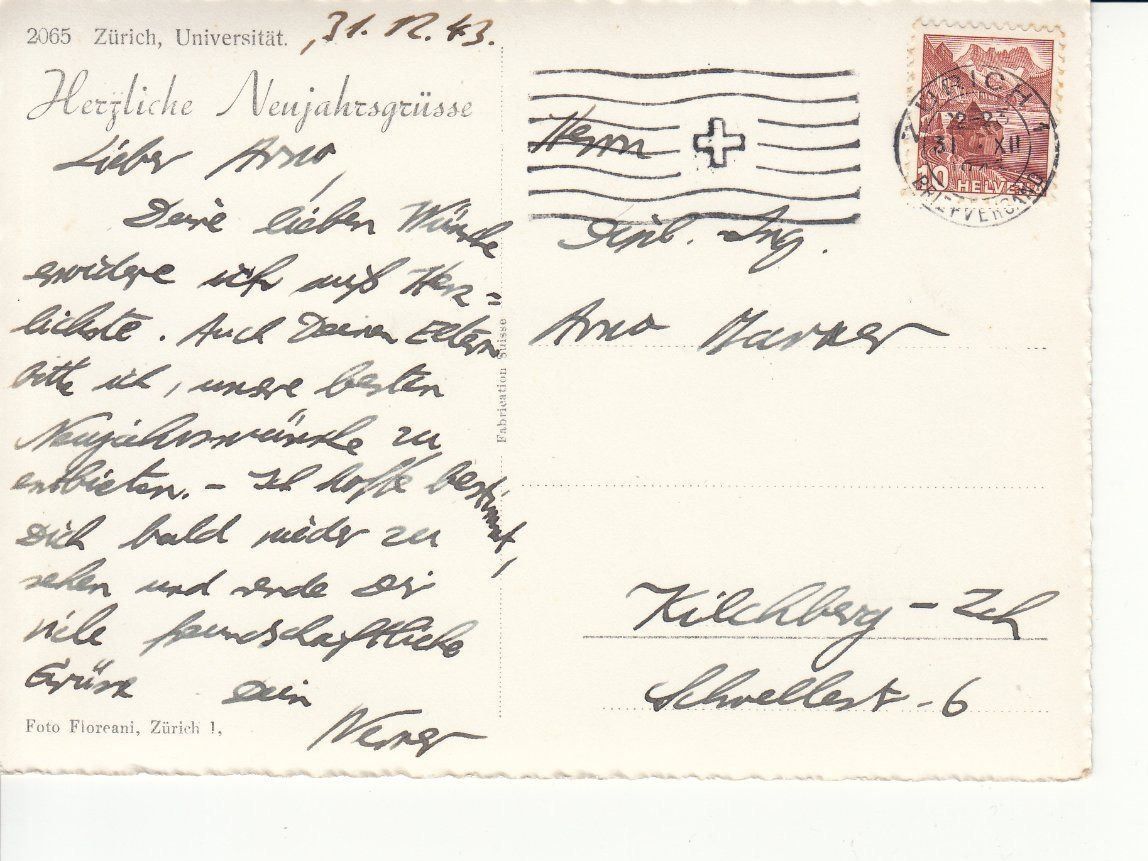 2065 Zürich, Universität.
31.12.43.
Herzliche Neujahrsgrüsse
Lieber Arno,
Deine lieben Wünsche
erwidere ich aufs Herz=
lichste. Auch Deinen Eltern
bitte ich, unsere besten
Neujahrswünsche zu
entbieten. - Ich hoffe bestimmt,
Dich bald wieder zu
sehen und sende Dir
viele freundschaftliche
Grüsse Dein
Werner
Foto Floreani, Zürich 1,
Fabrication Suisse
ZÜRICH 1
31 XII
BRIEFVERSAND
10 HELVETIA
Herrn
Dipl. Ing.
Arno
Kilchberg - Zch
Schoellerst - 6